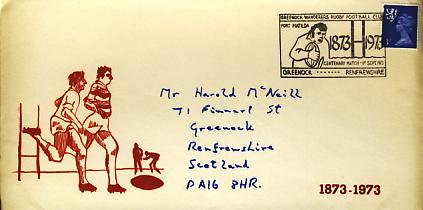 GREENOCK WANDERERS RUGBY FOOTBALL CLUB
FORT MATILDA
1873 1973
CENTENARY MATCH 1ST SEPT. 1973
GREENOCK RENFREWSHIRE
Mr Harold McNeill
71 Finnart St
Greenock
Renfrewshire
Scotland
PA16 8HR.
1873-1973